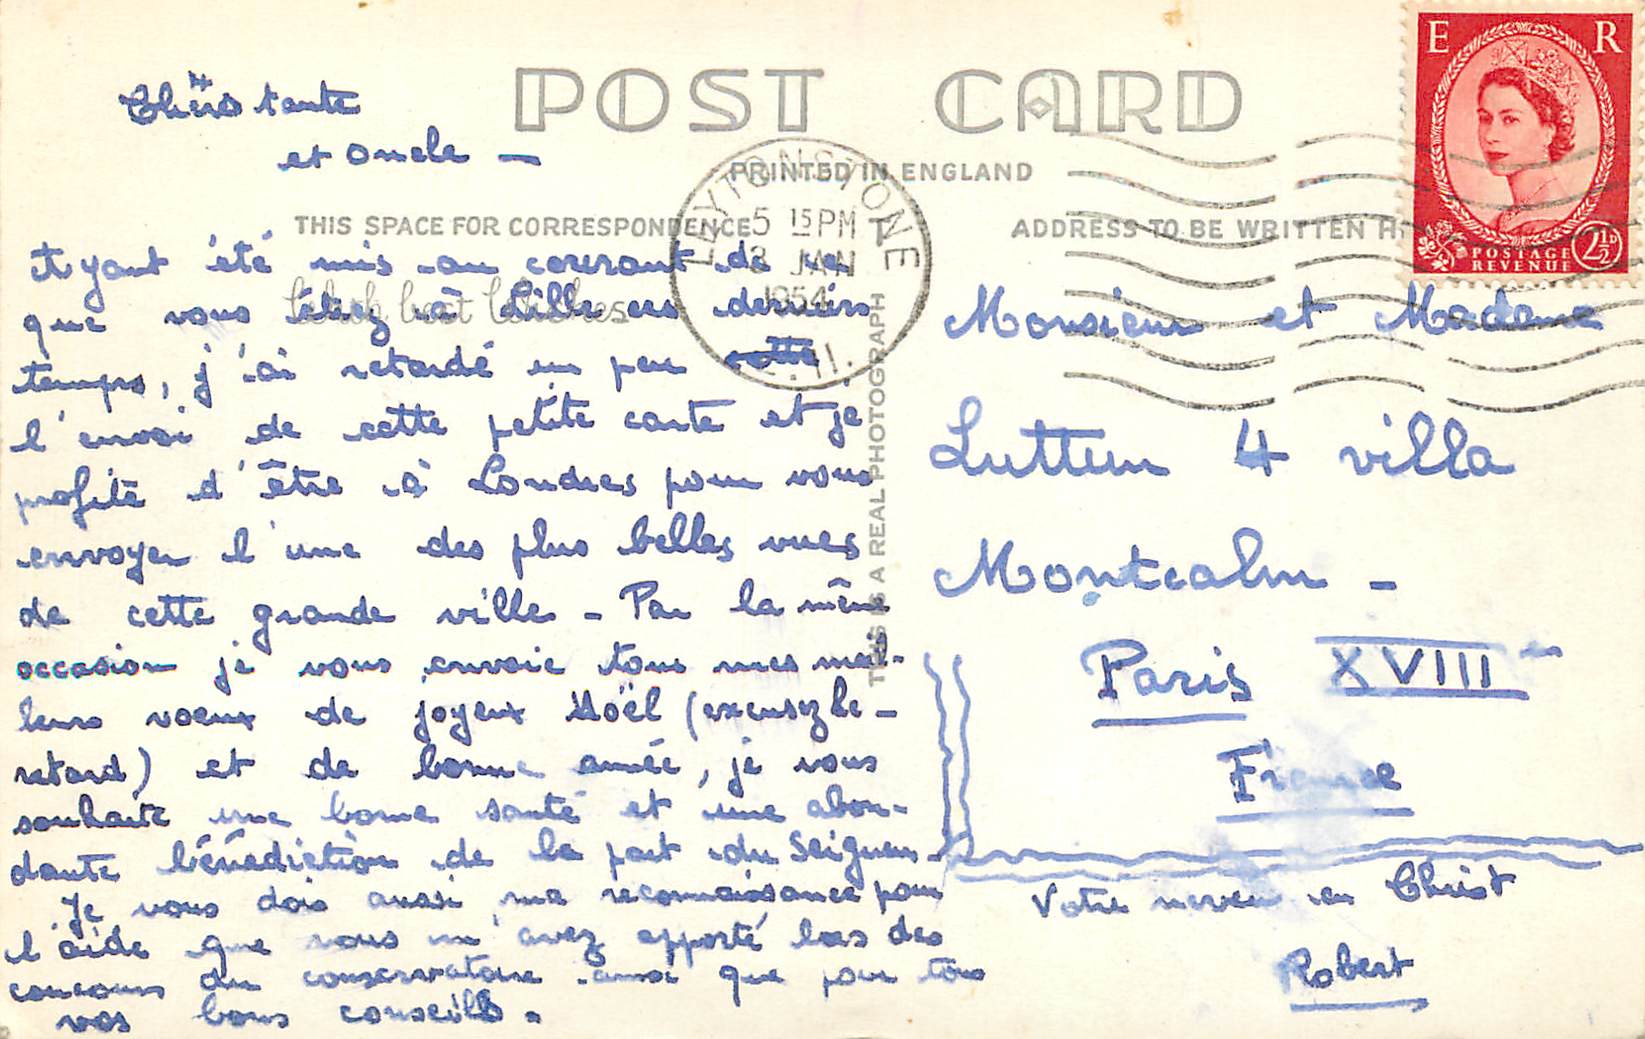 POST CARD
PRINTED IN ENGLAND
THIS SPACE FOR CORRESPONDENCE
ADDRESS TO BE WRITTEN H
THIS IS A REAL PHOTOGRAPH
LEYTONSTONE
5 15 PM
8 JAN
1954
E. 11.
E R
POSTAGE
REVENUE
2½D
Chers tante
et oncle –
Ayant été mis au courant de ce
que vous étiez à Lille ces derniers
temps, j'ai retardé un peu
l'envoi de cette petite carte et je
profite d'être à Londres pour vous
envoyer l'une des plus belles vues
de cette grande ville – Par la même
occasion je vous envoie tous mes meil-
leurs voeux de joyeux Noël (excusez le –
retard) et de bonne année, je vous
souhaite une bonne santé et une abon-
dante bénédiction de la part du Seigneur.
Je vous dois aussi ma reconnaissance pour
l'aide que vous m'avez apporté lors des
concours du conservatoire ainsi que pour tous
vos bons conseils.
Monsieur et Madame
Luttun 4 villa
Montcalm –
Paris XVIII
France
Votre neveu en Christ
Robert